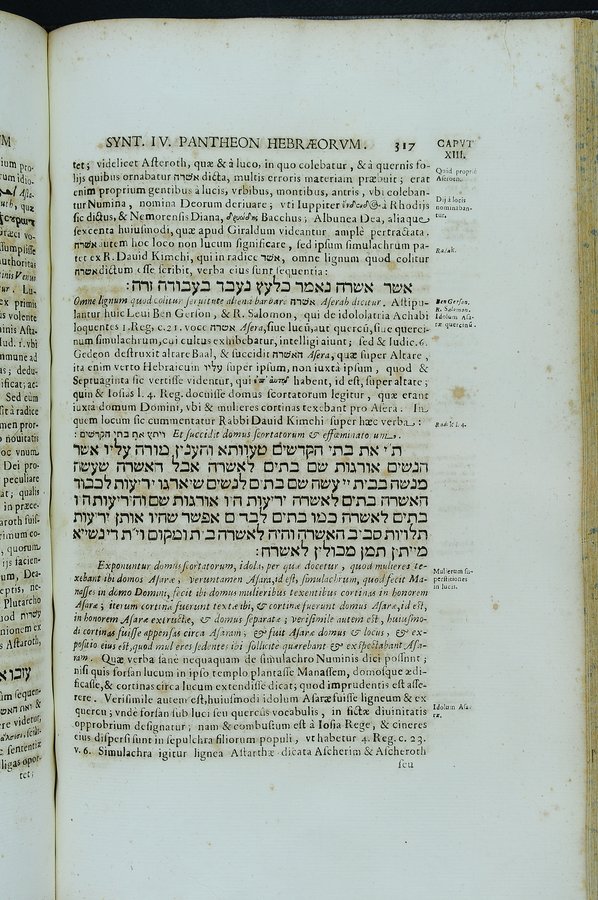 SYNT. IV. PANTHEON HEBRÆORVM. 317
CAPVT
XIII.
tet; videlicet Asteroth, quæ & à luco, in quo colebatur, & à quernis fo-
lijs quibus ornabatur אשרה dicta, multis erroris materiam præbuit; erat
enim proprium gentibus à lucis, vrbibus, montibus, antris, vbi coleban-
tur Numina, nomina Deorum deriuare; vti Iuppiter à Rhodijs
sic dictus, & Nemorensis Diana, Bacchus; Albunea Dea, aliaque
sexcenta huiusmodi, quæ apud Giraldum videantur amplè pertractata.
אשרה autem hoc loco non lucum significare, sed ipsum simulachrum pa-
tet ex R. Dauid Kimchi, qui in radice אשר, omne lignum quod colitur
אשרה dictum esse scribit, verba eius sunt sequentia:
אשר אשרה נאמר כלעץ נעבד בעבודה זרה:
Omne lignum quod colitur seruitute aliena barbar: אשרה Aserah dicitur. Astipu-
lantur huic Leui Ben Gerson, & R. Salomon, qui de idololatria Achabi
loquentes 1. Reg. c. 21. voce אשרה Asera, siue lucū, aut quercū, siue querci-
num simulachrum, cui cultus exhibebatur, intelligi aiunt; sed & Iudic. 6.
Gedeon destruxit altare Baal, & succidit האשרה Asera, quæ super Altare,
ita enim verto Hebraicum עליו super ipsum, non iuxtà ipsum, quod &
Septuaginta sic vertisse videntur, qui habent, id est, super altare;
quin & Iosias l. 4. Reg. docuisse domus scortatorum legitur, quæ erant
iuxtà domum Domini, vbi & mulieres cortinas texebant pro Asera. In
quem locum sic cummentatur Rabbi Dauid Kimchi super hæc verba:
ויתץ את בתי הקדשים: Et succidit domus scortatorum & effœminatorum.
ת׳י את בתי הקדשים טעוותא והענין מורה עליו אשר
הנשים אורגות שם בתים לאשרה אבל האשרה שעשה
מנשה בבית יי עשה שם בתים לנשים שיארגו יריעות לכבוד
האשרה בתים לאשרה יריעות היו אורגות שם והיריעות היו
בתים לאשרה כמו בתים לבדים אפשר שהיו אותן יריעות
תלויות סביב האשרה והיה לאשרה בית ומקום וי׳ת דינשיא
מייתין תמן מכולין לאשרה:
Exponuntur domus scortatorum, idola, per quæ docetur, quod mulieres te-
xebant ibi domos Asaræ, veruntamen Asara, id est, simulachrum, quod fecit Ma-
nasses in domo Domini, fecit ibi domus mulieribus texentibus cortinas in honorem
Asaræ; iterum cortinæ fuerunt textæ ibi, & cortinæ fuerunt domus Asaræ, id est,
in honorem Asaræ extructæ, & domus separatæ; verisimile autem est, huiusmo-
di cortinas fuisse appensas circa Asaram, & fuit Asaræ domus & locus, & ex-
positio eius est, quod mulieres sedentes ibi sollicitè quærebant & expectabant Asa-
ram. Quæ verba sanè nequaquam de simulachro Numinis dici possunt;
nisi quis forsan lucum in ipso templo plantasse Manassem, domosque ædi-
ficasse, & cortinas circa lucum extendisse dicat; quod imprudentis est asse-
rere. Verisimile autem est, huiusmodi idolum Asaræ fuisse ligneum & ex
quercu; vnde forsan sub luci seu quercus vocabulis, in fictæ diuinitatis
opprobrium designatur; nam & combustum est à Iosia Rege, & cineres
eius dispersi sunt in sepulchra filiorum populi, vt habetur 4. Reg. c. 23.
v. 6. Simulachra igitur lignea Astarthæ dicata Ascherim & Ascheroth
seu
Quid propriè
Asteroth.
Dij à locis
nominaban-
tur.
Radak.
Ben Gerson.
R. Salomon.
Idolum Asa-
ræ quercinū.
Radak l. 4.
Mulierum su-
perstitiones
in lucis.
Idolum Asa-
ræ.